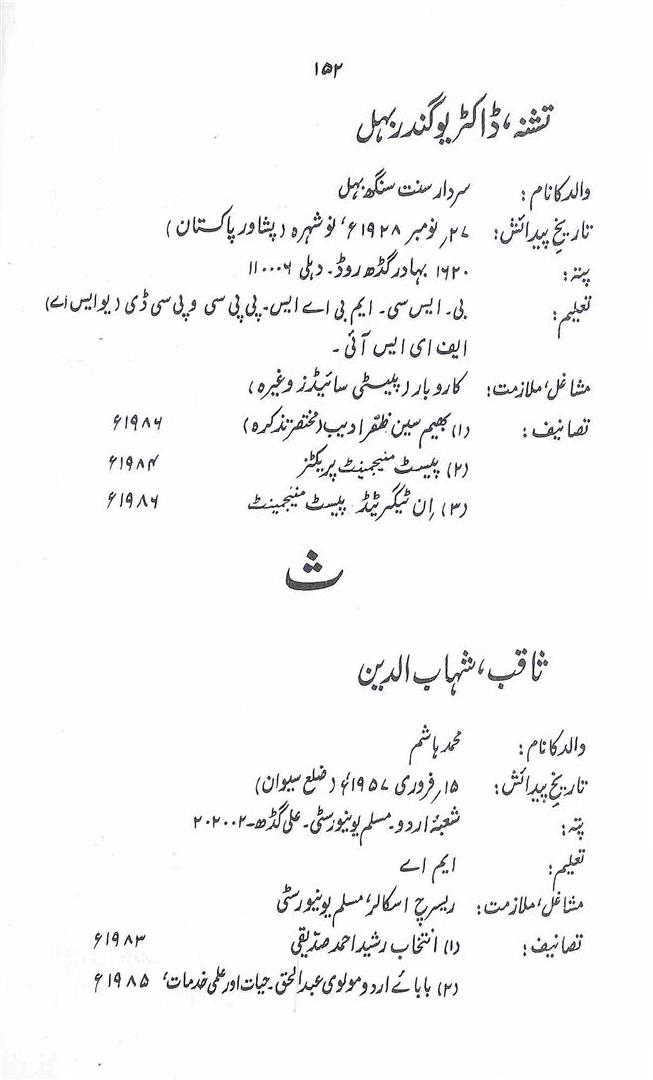 ۱۵۲
تشنہ، ڈاکٹر یوگندر بہل
والد کا نام: سردار سنت سنگھ بہل
تاریخِ پیدائش: ۲۷؍ نومبر ۱۹۲۸ء، نوشہرہ (پشاور پاکستان)
پتہ: ۱۶۲۰ بہادر گڈھ روڈ۔ دہلی ۱۱۰۰۰۶
تعلیم: بی۔ ایس سی۔ ایم بی اے ایس۔ پی پی سی و پی سی ڈی (یو ایس اے)
ایف ای ایس آئی۔
مشاغل، ملازمت: کاروبار (پیسٹی سائیڈز وغیرہ)
تصانیف: (۱) بھیم سین ظفر ادیب (مختصر تذکرہ) ۱۹۸۶ء
(۲) پیسٹ منیجمینٹ پریکٹز ۱۹۸۴ء
(۳) اِن ٹیگریٹیڈ پیسٹ منیجمینٹ ۱۹۸۶ء
ث
ثاقب، شہاب الدین
والد کا نام: محمد ہاشم
تاریخِ پیدائش: ۱۵؍ فروری ۱۹۵۷ء (ضلع سیوان)
پتہ: شعبۂ اردو۔ مسلم یونیورسٹی۔ علی گڈھ۔ ۲۰۲۰۰۲
تعلیم: ایم اے
مشاغل، ملازمت: ریسرچ اسکالر، مسلم یونیورسٹی
تصانیف: (۱) انتخاب رشید احمد صدّیقی ۱۹۸۳ء
(۲) بابائے اردو مولوی عبدالحق۔ حیات اور علمی خدمات، ۱۹۸۵ء